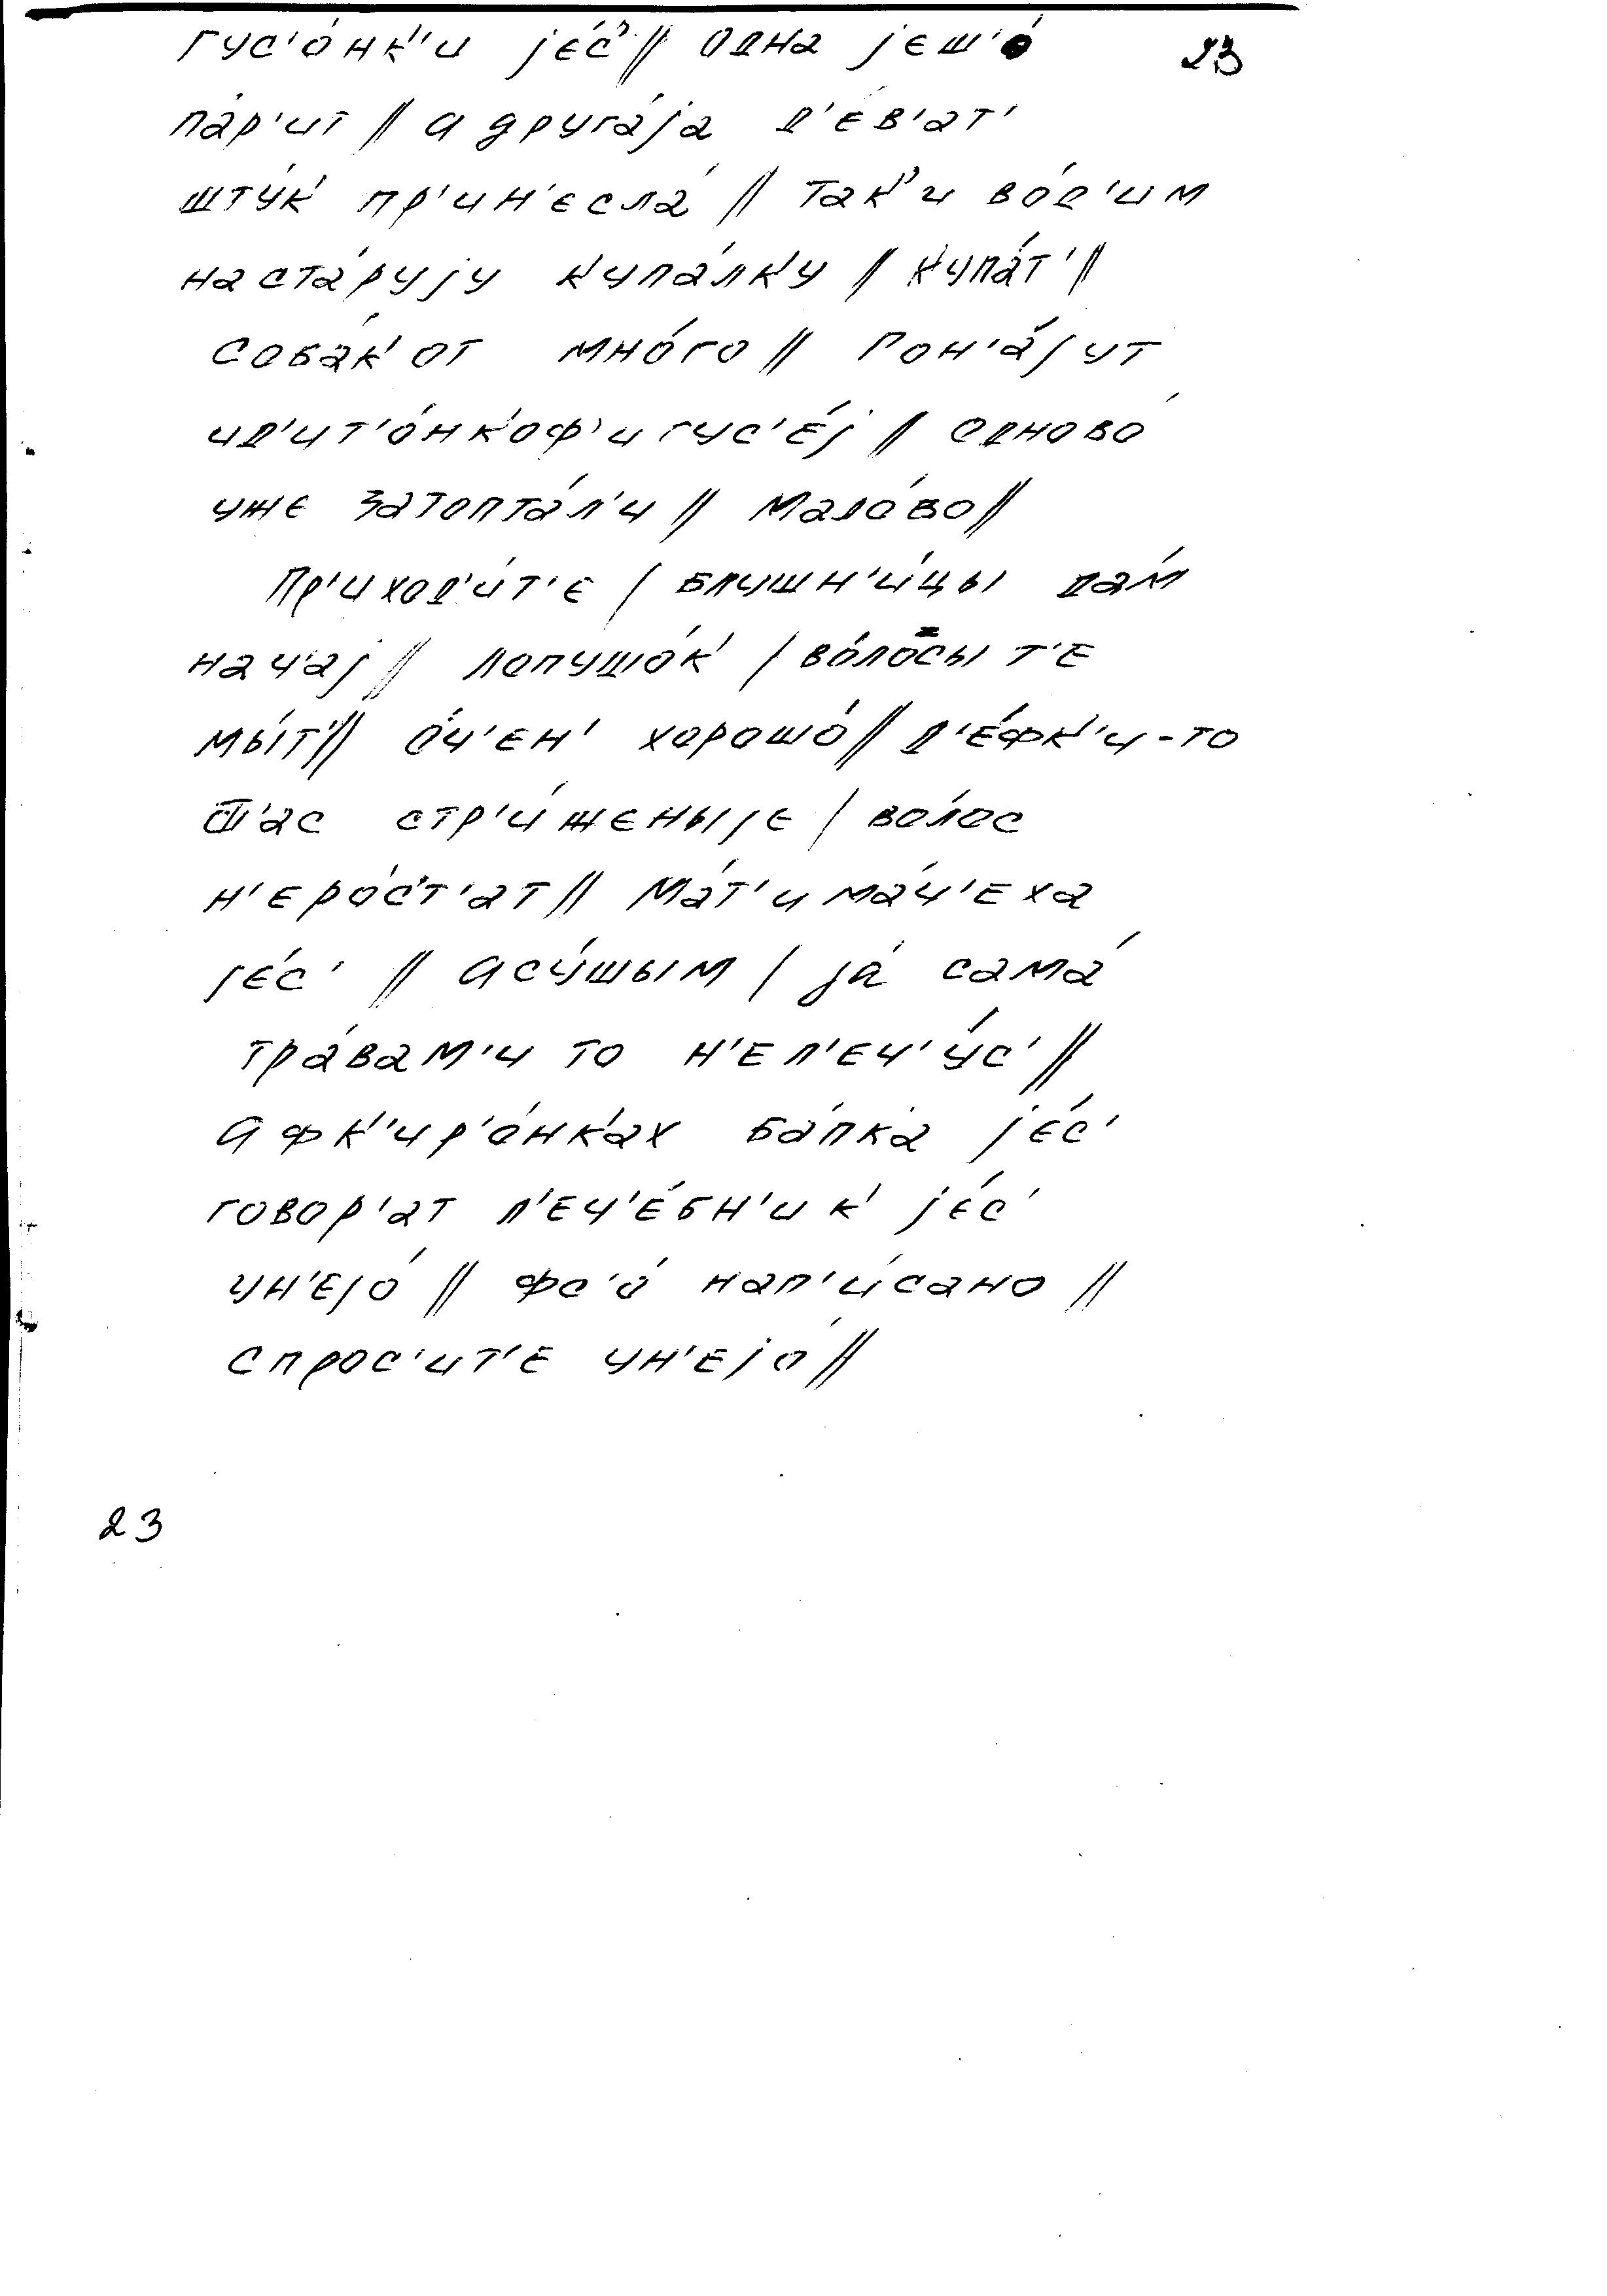 гус'о́нк'и jе́с' // одна jеш'о́ 23
па́р'ит // а друга́jа д'е́в'ат'
шту́к пр'ин'есла́ // так'и во́д'им
наста́руjу купа́лку // купа́т' //
соба́к от мно́го // гон'а́jут
ид'ит'о́нкоф'и гус'е́j // одново́
уже затопта́л'и // мало́во //
Пр'иход'и́т'е / блушн'и́цы да́м
нач'аj // лопушо́к / во́лосы т'е
мы́т' // о́ч'ен' хорошо́ // д'е́фк'и-то
ш'ас стр'и́женыjе / во́лос
н'еро́ст'ат // Ма́т'и ма́ч'еха
jе́с' // асу́шым / jа́ сама́
тра́вам'и то н'ел'еч'у́с' //
а фк'ир'о́нках ба́пка jе́с'
говор'ат л'еч'е́бн'ик jе́с'
ун'еjо́ // фс'о́ нап'и́сано //
спрос'ит'е ун'еjо́ //
23